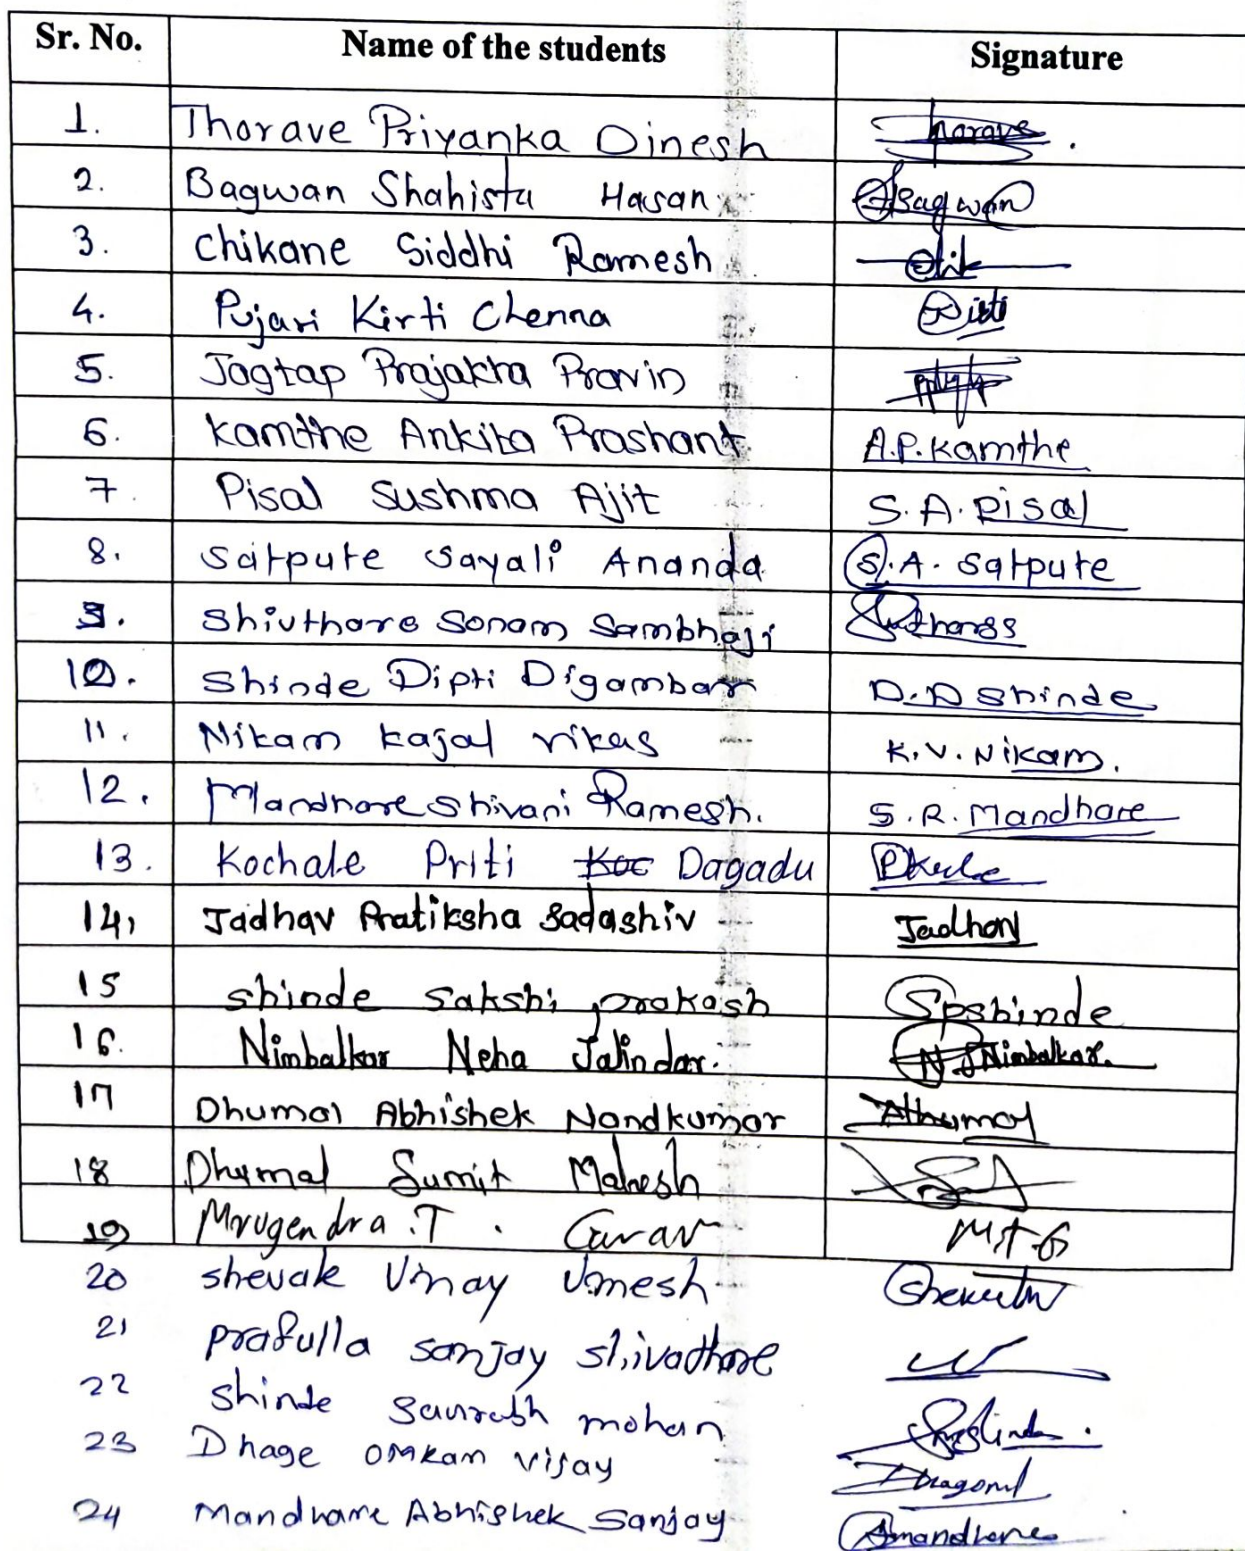 Sr. No. Name of the students Signature
1. Thorave Priyanka Dinesh Thorave.
2. Bagwan Shahista Hasan Bagwan
3. Chikane Siddhi Ramesh
4. Pujari Kirti Chenna
5. Jagtap Prajakta Pravin
6. Kamthe Ankita Prashant A.P.Kamthe
7. Pisal Sushma Ajit S.A.Pisal
8. Satpute Sayali Ananda S.A. Satpute
9. Shivthare Sonam Sambhaji
10. Shinde Dipti Digambar D.D Shinde
11. Nikam Kajal Vikas K.V.Nikam.
12. Mandhare Shivani Ramesh. S.R.Mandhare
13. Kochale Priti Koc Dagadu
14, Jadhav Pratiksha Sadashiv Jadhav
15 Shinde Sakshi prakash Spshinde
16. Nimbalkar Neha Jalindar. N J Nimbalkar.
17 Dhumal Abhishek Nandkumar
18 Dhumal Sumit Mahesh
19 Mrugendra .T . Gurav M.T.G
20 shevale Vinay Umesh
21 prafulla sanjay shivathare
22 Shinde Saurabh mohan
23 Dhage Omkar Vijay
24 Mandhare Abhishek Sanjay Amandhare